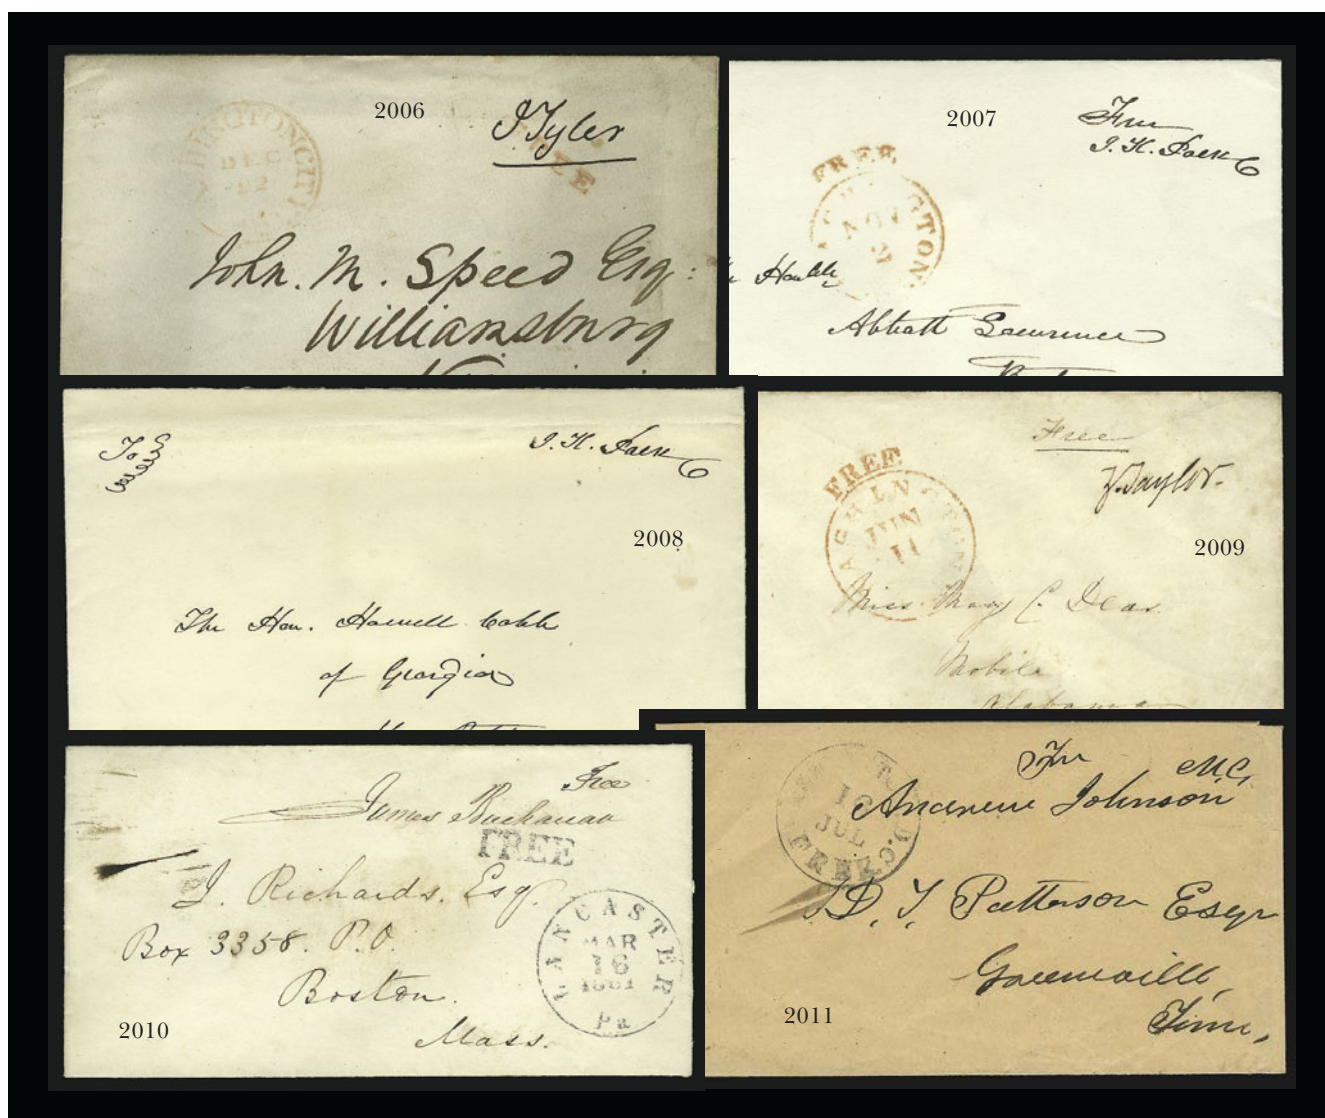 2006
J Tyler
FREE
WASHINGTON CITY
DEC
22
John. M. Speed Esq:
Williamsburg
2007
Free
J. K. Polk
FREE
WASHINGTON
NOV
2
Abbott Lawrence
To
J. K. Polk
2008
The Hon. Howell Cobb
of Georgia
Free
Z. Taylor.
FREE
WASHINGTON
JUN
11
2009
Miss. Mary C. Deas.
Mobile
Alabama
Free
James Buchanan
FREE
J. Richards. Esq.
Box 3358. P.O.
Boston.
Mass.
LANCASTER
MAR
18
1861
Pa
2010
Free M.C,
Andrew Johnson
WASHINGTON D.C.
16
JUL
FREE
D, T, Patterson Esqr
Greenville,
Tenn,
2011